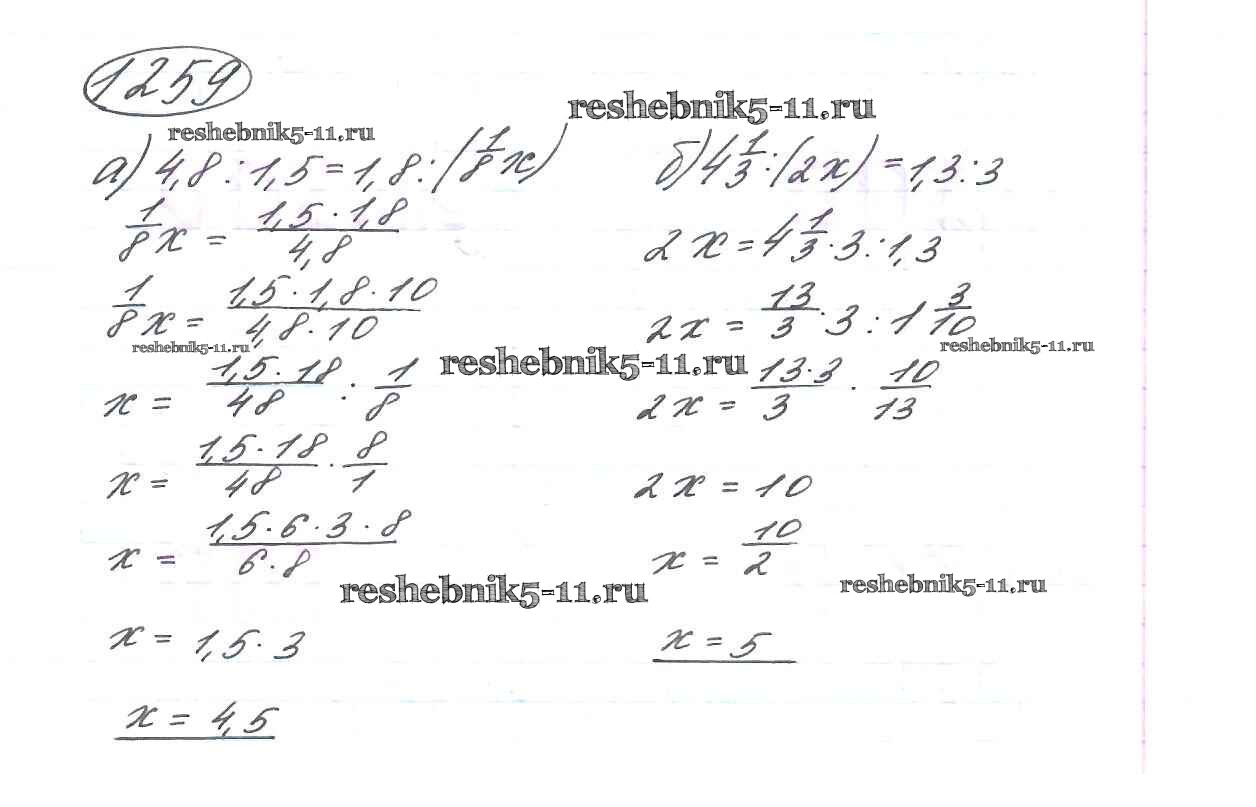 1259
reshebnik5-11.ru
reshebnik5-11.ru
а) 4,8 : 1,5 = 1,8 : (1/8 x)
1/8 x = 1,5 · 1,8 / 4,8
1/8 x = 1,5 · 1,8 · 10 / 4,8 · 10
reshebnik5-11.ru
x = 1,5 · 18 / 48 : 1/8
x = 1,5 · 18 / 48 · 8/1
x = 1,5 · 6 · 3 · 8 / 6 · 8
reshebnik5-11.ru
x = 1,5 · 3
x = 4,5
б) 4 1/3 : (2x) = 1,3 : 3
2x = 4 1/3 · 3 : 1,3
2x = 13/3 · 3 : 1 3/10
reshebnik5-11.ru
reshebnik5-11.ru
2x = 13 · 3 / 3 · 10/13
2x = 10
x = 10/2
reshebnik5-11.ru
x = 5